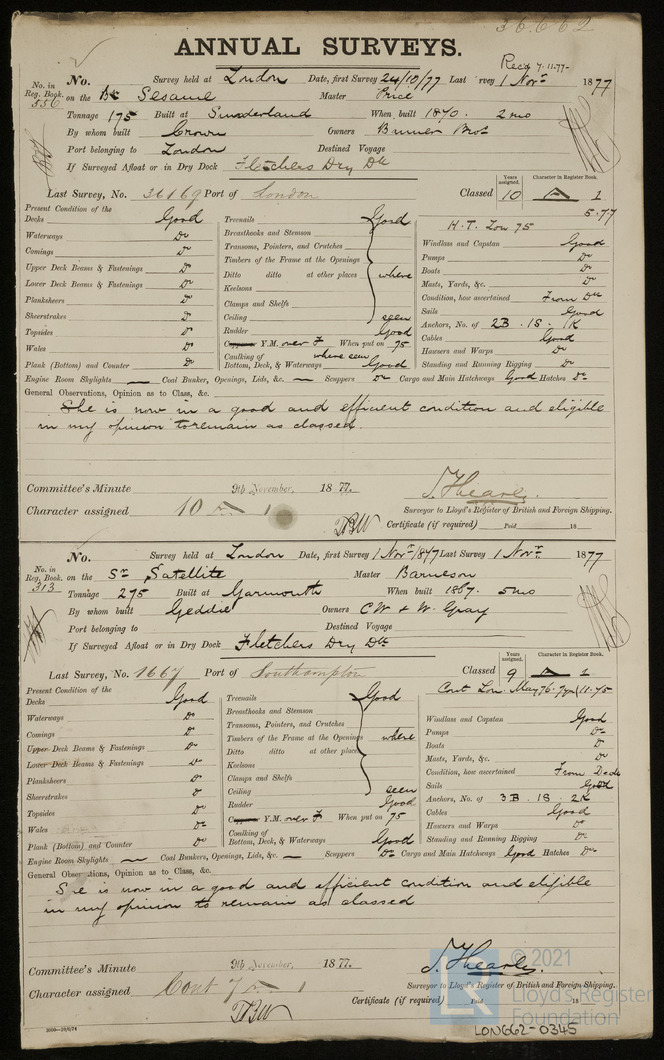 36662
ANNUAL SURVEYS.
Recd 7.11.77
No. in Reg. Book. 556
No. Survey held at London Date, first Survey 24/10/77 Last Survey 1 Novr 1877
on the Bk Sesame Master Price
Tonnage 175 Built at Sunderland When built 1870. 2 mo
By whom built Crown Owners Bros
Port belonging to London Destined Voyage
If Surveyed Afloat or in Dry Dock Fletchers Dry Dk
Last Survey, No. 36169 Port of London Classed Years assigned. 10 Character in Register Book. A 1
5.77
Present Condition of the
Decks Good
Treenails Good
H.T. Lon 75
Waterways Do
Breasthooks and Stemson
Windlass and Capstan Good
Comings Do
Transoms, Pointers, and Crutches
Pumps Do
Upper Deck Beams & Fastenings Do
Timbers of the Frame at the Openings
Boats Do
Lower Deck Beams & Fastenings Do
Ditto ditto at other places where
Masts, Yards, &c. Do
Planksheers Do
Keelsons
Condition, how ascertained From Dk
Sheerstrakes Do
Clamps and Shelfs
Sails Good
Topsides Do
Ceiling seen
Anchors, No. of 2B . 1S . 1K
Wales Do
Rudder Good
Cables Good
Copper Y.M. over F When put on 75
Hawsers and Warps Do
Plank (Bottom) and Counter Do
Caulking of Bottom, Deck, & Waterways where seen Good
Standing and Running Rigging Do
Engine Room Skylights — Coal Bunker, Openings, Lids, &c. — Scuppers Do Cargo and Main Hatchways Good Hatches Do
General Observations, Opinion as to Class, &c.
She is now in a good and efficient condition and eligible
in my opinion to remain as classed.
Committee's Minute 9th November, 1877.
Character assigned 10 A 1
J. Hearle.
Surveyor to Lloyd's Register of British and Foreign Shipping.
Certificate (if required) Paid 18
No. in Reg. Book. 313
No. Survey held at London Date, first Survey 1 Novr 1847 Last Survey 1 Novr. 1877
on the Sr Satellite Master Barneson
Tonnage 275 Built at Garmouth When built 1867. 5 mo
By whom built Geddie Owners C W & W. Gray
Port belonging to Destined Voyage
If Surveyed Afloat or in Dry Dock Fletchers Dry Dk
Last Survey, No. 1667 Port of Southampton Classed Years assigned. 9 Character in Register Book. A 1
Cont Lon. May 76. 7 yrs 11.75
Present Condition of the
Decks Good
Treenails Good
Waterways Do
Breasthooks and Stemson
Windlass and Capstan Good
Comings Do
Transoms, Pointers, and Crutches
Pumps Do
Upper Deck Beams & Fastenings Do
Timbers of the Frame at the Openings where
Boats Do
Lower Deck Beams & Fastenings Do
Ditto ditto at other places
Masts, Yards, &c. Do
Planksheers Do
Keelsons
Condition, how ascertained From Deck
Sheerstrakes Do
Clamps and Shelfs
Sails Good
Topsides Do
Ceiling seen
Anchors, No. of 3B . 1S . 2K
Wales Do
Rudder Good
Cables Good
Copper Y.M. over F When put on 75
Hawsers and Warps Do
Plank (Bottom) and Counter Do
Caulking of Bottom, Deck, & Waterways Good
Standing and Running Rigging Do
Engine Room Skylights — Coal Bunkers, Openings, Lids, &c. — Scuppers Do Cargo and Main Hatchways Good Hatches Do
General Observations, Opinion as to Class, &c.
She is now in a good and efficient condition and eligible
in my opinion to remain as classed
Committee's Minute 9th November, 1877.
Character assigned Cont 7 A 1
J. Hearle.
Surveyor to Lloyd's Register of British and Foreign Shipping.
Certificate (if required) Paid 18
© 2021
Lloyd's Register
Foundation
LON662-0345